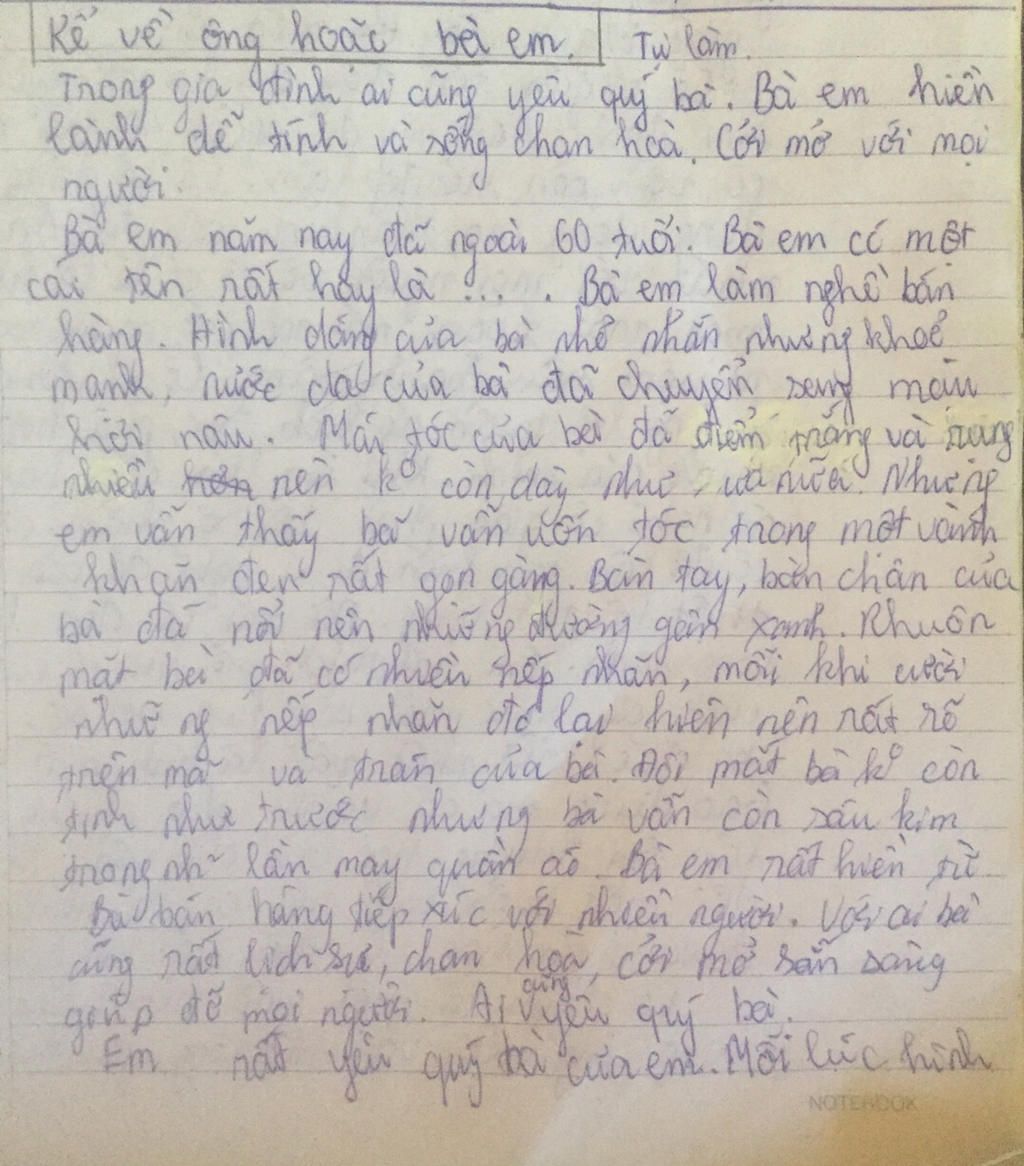 Kể về ông hoặc bà em. Tự làm.
Trong gia đình ai cũng yêu quý bà. Bà em hiền
lành dễ tính và sống chan hoà. Cởi mở với mọi
người.
Bà em năm nay đã ngoài 60 tuổi. Bà em có một
cái tên rất hay là .... . Bà em làm nghề bán
hàng. Hình dáng của bà nhỏ nhắn nhưng khoẻ
mạnh, nước da của bà đã chuyển sang màu
hơi nâu. Mái tóc của bà đã điểm trắng và rụng
nhiều nên k° còn dày như xưa nữa. Nhưng
em vẫn thấy bà vẫn uốn tóc trong một vành
khăn đen rất gọn gàng. Bàn tay, bàn chân của
bà đã nổi nên những đường gân xanh. Khuôn
mặt bà đã có nhiều nếp nhăn, mỗi khi cười
những nếp nhăn đó lại hiện nên rất rõ
trên má và trán của bà. Đôi mắt bà k° còn
tinh như trước nhưng bà vẫn còn sâu kim
trong nh~ lần may quần áo. Bà em rất hiền từ.
Bà bán hàng tiếp xúc với nhiều người. Với ai bà
cũng rất lịch sự, chan hoà, cởi mở sẵn sàng
giúp đỡ mọi người. Ai cũng yêu quý bà.
Em rất yêu quý bà của em. Mỗi lúc hình
NOTEBOOK